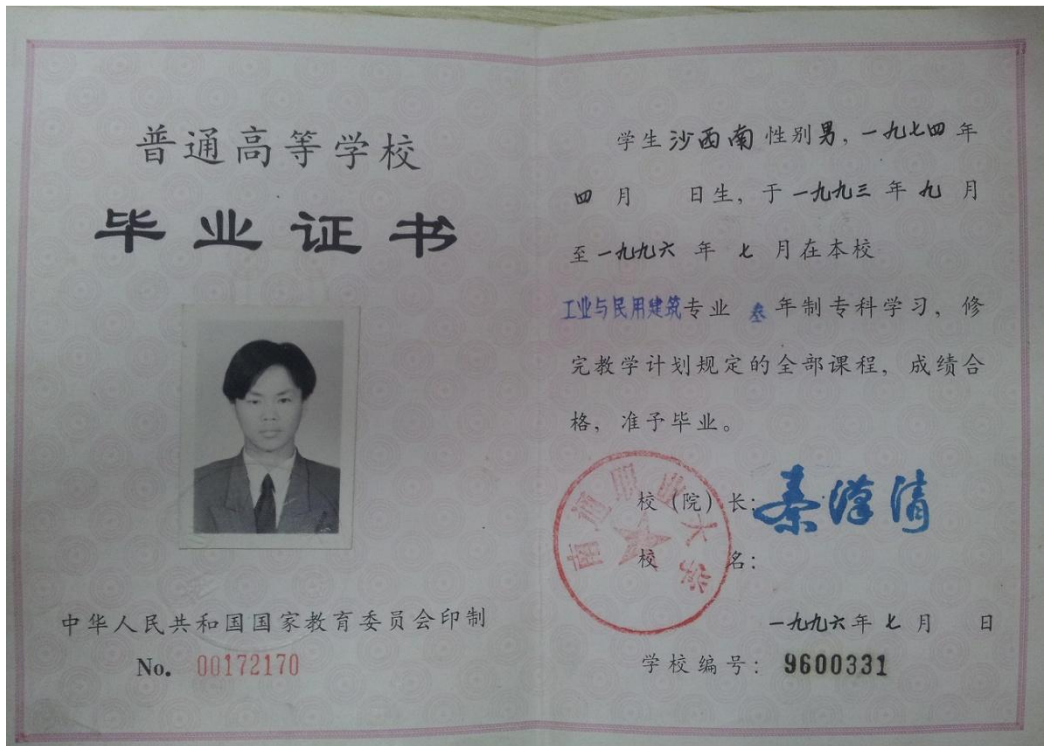 普通高等学校
毕业证书
中华人民共和国国家教育委员会印制
No. 00172170
学生沙西南性别男，一九七四年
四月 日生，于一九九三年九月
至一九九六年七月在本校
工业与民用建筑专业 叁年制专科学习，修
完教学计划规定的全部课程，成绩合
格，准予毕业。
南通职业大学
校（院）长：秦汉清
校 名：
一九九六年七月 日
学校编号：9600331